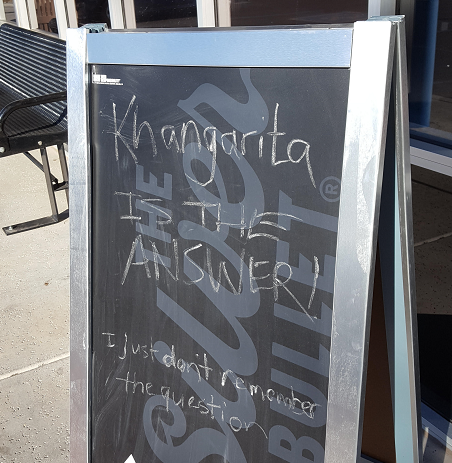 Khangarita
IS THE
ANSWER!
I just don't remember
the question
THE
Silver
BULLET®